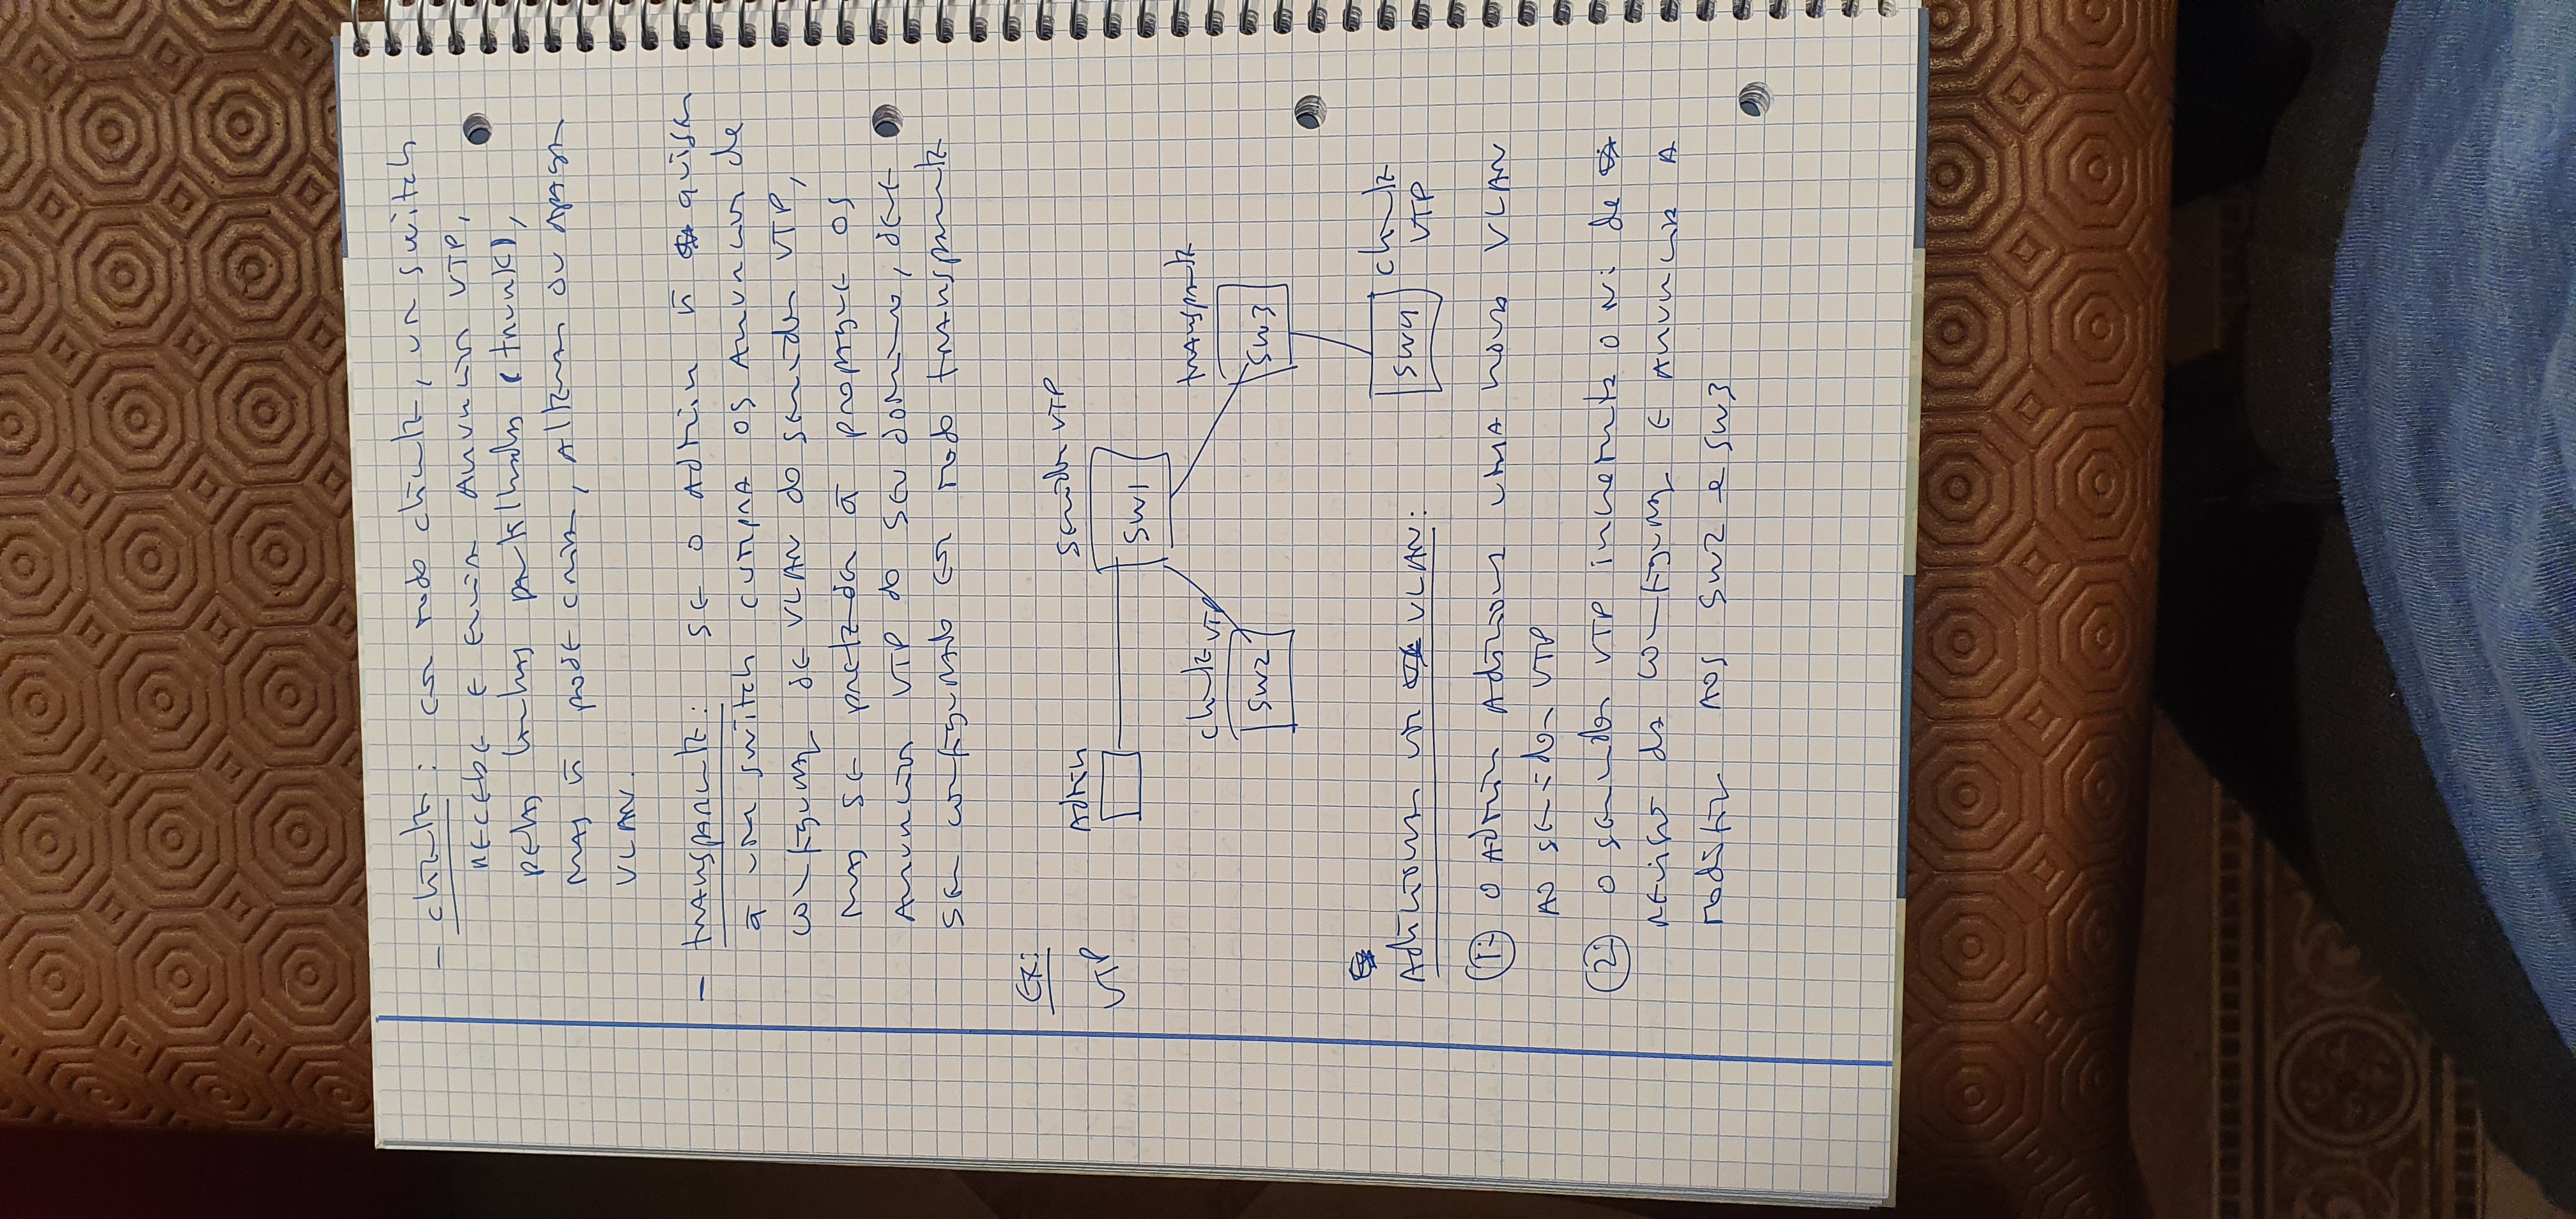 - cliente: em modo cliente, um switch
recebe e envia anuncios VTP,
pelas linhas partilhadas (trunk),
mas ñ pode criar, alterar ou apagar
VLAN.
- transparente: se o Admin ñ quiser
q̃ um switch cumpra os anuncios de
configuraç de VLAN do servidor VTP,
mas se pretenda q̃ propague os
anuncios VTP do seu dominio, deve
ser configurado em modo transparente
Ex:
VTP
Admin
servidor VTP
SW1
cliente VTP
SW2
transparente
SW3
SW4
cliente
VTP
Adicionar um VLAN:
1: o Admin adiciona uma nova VLAN
ao servidor VTP
2: o servidor VTP incrementa o nº de
revisão da configuraç e anuncia a
modificaç aos SW2 e SW3